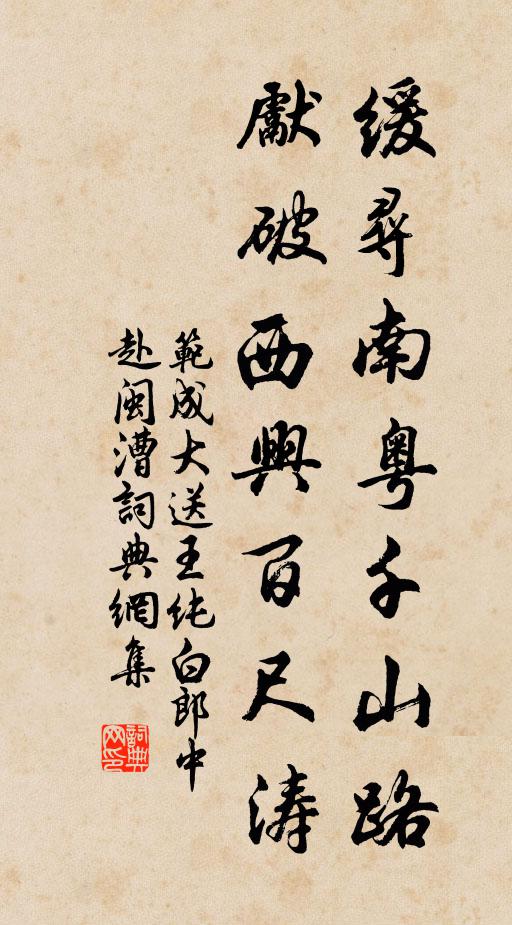 緩尋南粵千山路
獻破西興百尺濤
範成大送王純白郎中
赴閩漕詞典網集
詞典
网印